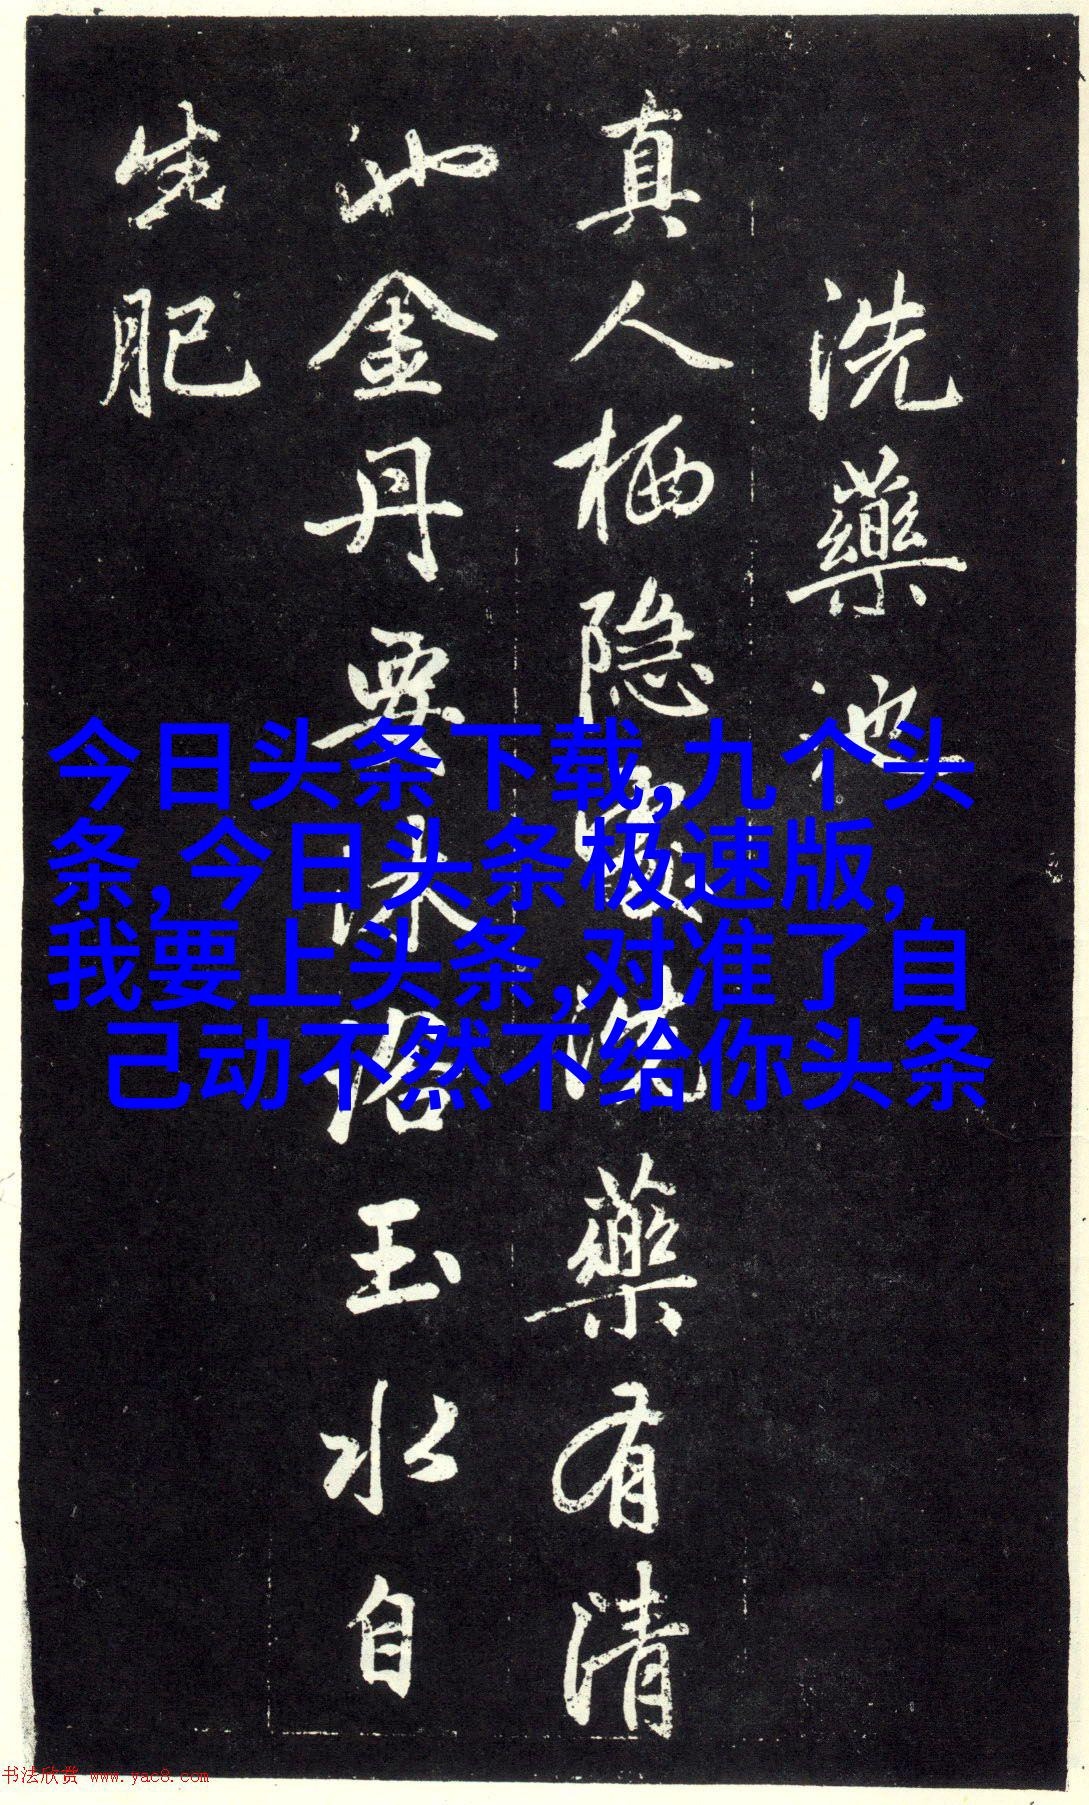 洗藥池
真人栖隐洗藥有清
池金丹要沐浴玉水自
生肥
今日头条下载,九个头
条,今日头条极速版,
我要上头条,对准了自
己动不然不给你头条
书法欣赏 www.yac8.com